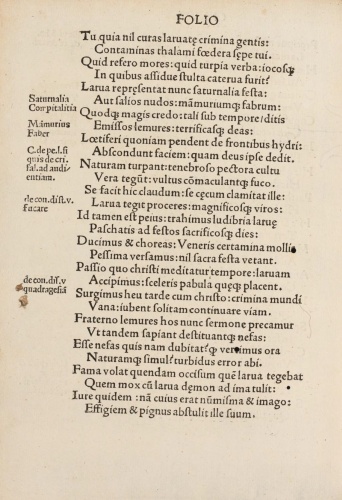 FOLIO
Tu quia nil curas laruatę crimina gentis:
Contaminas thalami fœdera sępe tui.
Quid refero mores: quid turpia verba: iocosq;
In quibus assidue stulta caterua furit?
Larua repręsentat nunc saturnalia festa:
Aut salios nudos: māmuriumq; fabrum:
Quodq; magis credo: tali sub tempore/ditis
Emissos lemures: terrificasq; deas:
Lœtiferi quoniam pendent de frontibus hydri:
Abscondunt faciem: quam deus ipse dedit.
Naturam turpant: tenebroso pectora cultu
Vera tegūt: vultus cōmaculantq; fuco.
Se facit hic claudum: se cęcum clamitat ille:
Larua tegit proceres: magnificosq; viros:
Id tamen est peius: trahimus ludibria laruę
Paschatis ad festos sacrificosq; dies:
Ducimus & choreas: Veneris certamina mollis
Pessima versamus: nil sacra festa vetant.
Passio quo christi meditatur tempore: laruam
Accipimus: sceleris pabula quęq; placent.
Surgimus heu tarde cum christo: crimina mundi
Vana: iubent solitam continuare viam.
Fraterno lemures hos nunc sermone precamur
Vt tandem sapiant destituantq; nefas:
Esse nefas quis nam dubitat? q; verimus ora
Naturamq; simul? turbidus error abi.
Fama volat quendam occisum quē larua tegebat
Quem mox cū larua dęmon ad ima tulit:
Iure quidem: nā cuius erat nūmisma & imago:
Effigiem & pignus abstulit ille suum.
Saturnalia
Cōpitalitia
Māmurius
Faber
C. de pe. l. si
quis de cri-
fal. ad audi-
entiam.
de con. dis. v.
fucare
de con. dis. v
quadragesiā